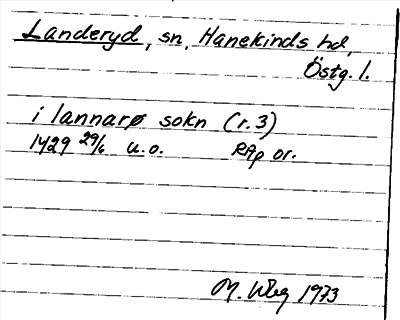 Landeryd, sn, Hanekinds hd,
Östg. l.
i lannarø sokn (r.3)
1429 29/6 u.o. RAp or.
M. Wbg 1973